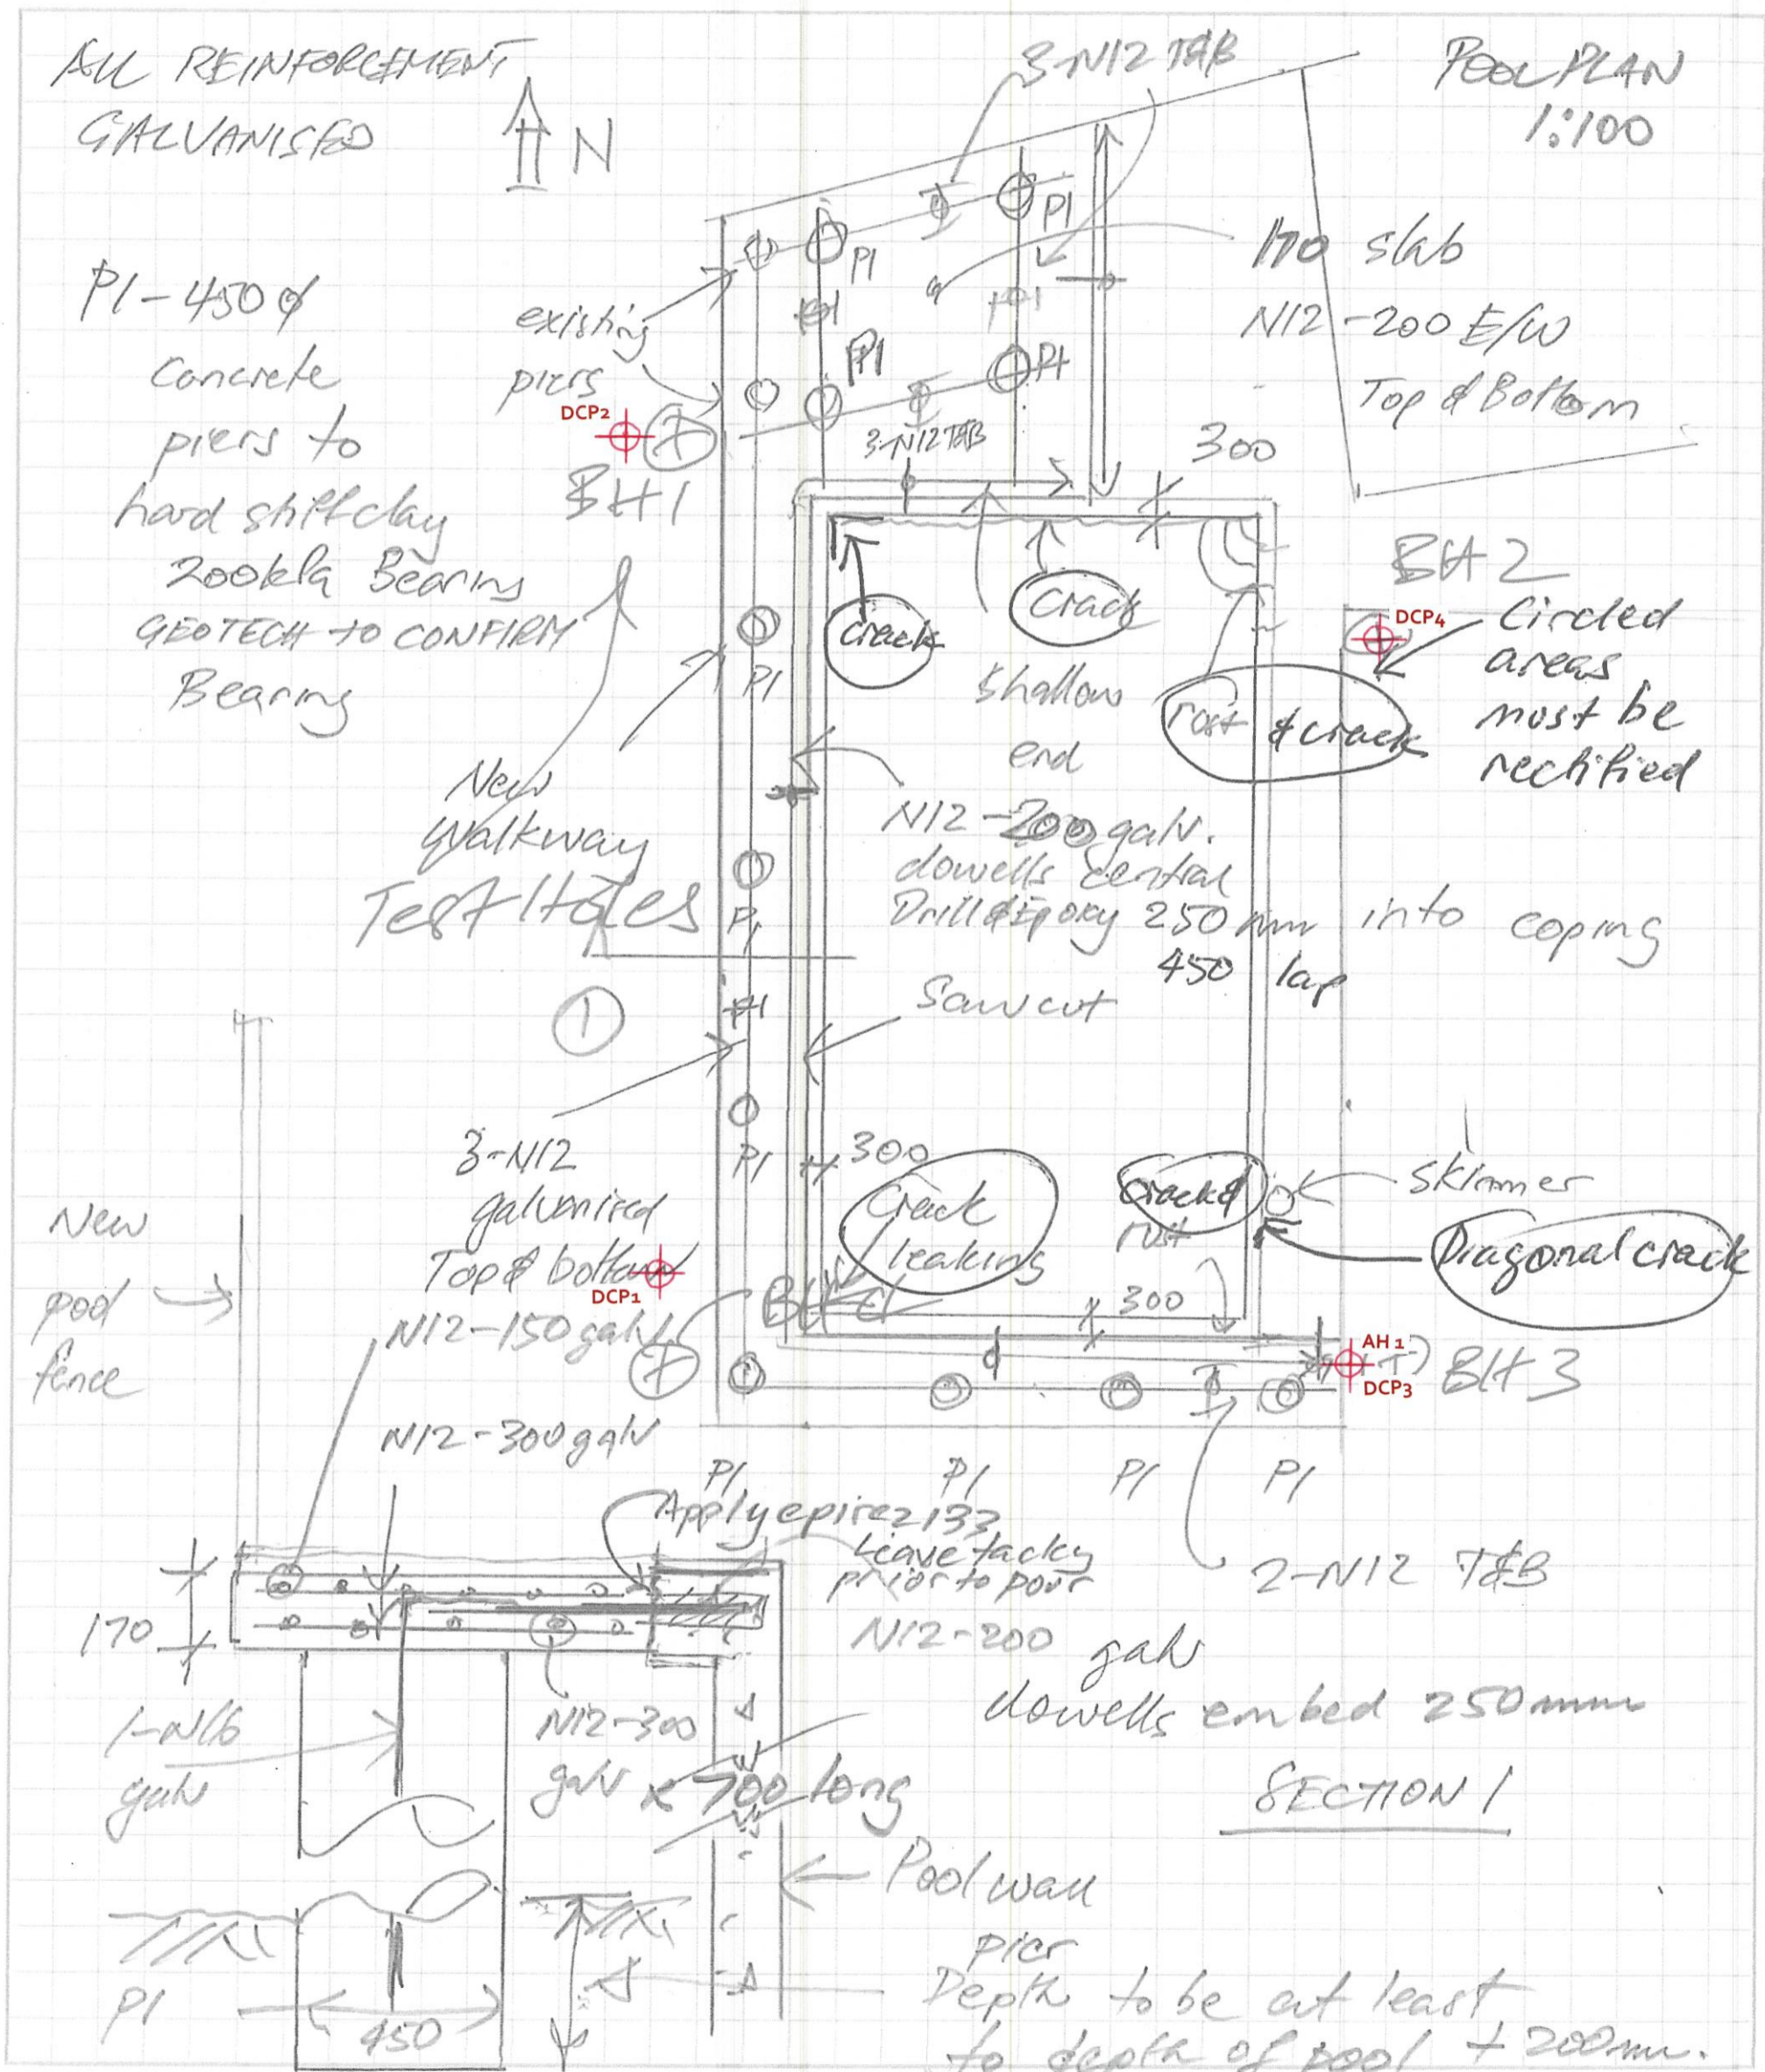 ALL REINFORCEMENT
GALVANISED
N
3-N12 T&B
POOL PLAN
1:100
P1
P1
170 slab
N12-200 E/W
Top & Bottom
P1-450ϕ
Concrete
piers to
hard stiff clay
200kPa Bearing
GEOTECH to CONFIRM
Bearing
existing
piers
P1
P1
DCP2
BH1
3-N12 T&B
300
BH2
DCP4
Circled
areas
must be
rectified
crack
Crack
P1
Shallow
end
rust & crack
New
Walkway
Test Holes
N12-200 galv.
dowells central
Drill & Epoxy 250mm into coping
450 lap
P1
1
Sawcut
3-N12
galvanised
Top & bottom
DCP1
N12-150 galv
P1
300
Crack
leaking
Crack &
rust
skimmer
Diagonal crack
New
pool
fence
300
AH 1
DCP3
BH3
N12-300 galv
P1
P1
P1
P1
Apply epirez 133
Leave tacky
prior to pour
2-N12 T&B
170
N12-200 galv
dowells embed 250mm
1-N16
galv
N12-300
galv
x 700 long
SECTION 1
Pool wall
pier
Depth to be at least
to depth of pool + 200mm.
P1
450